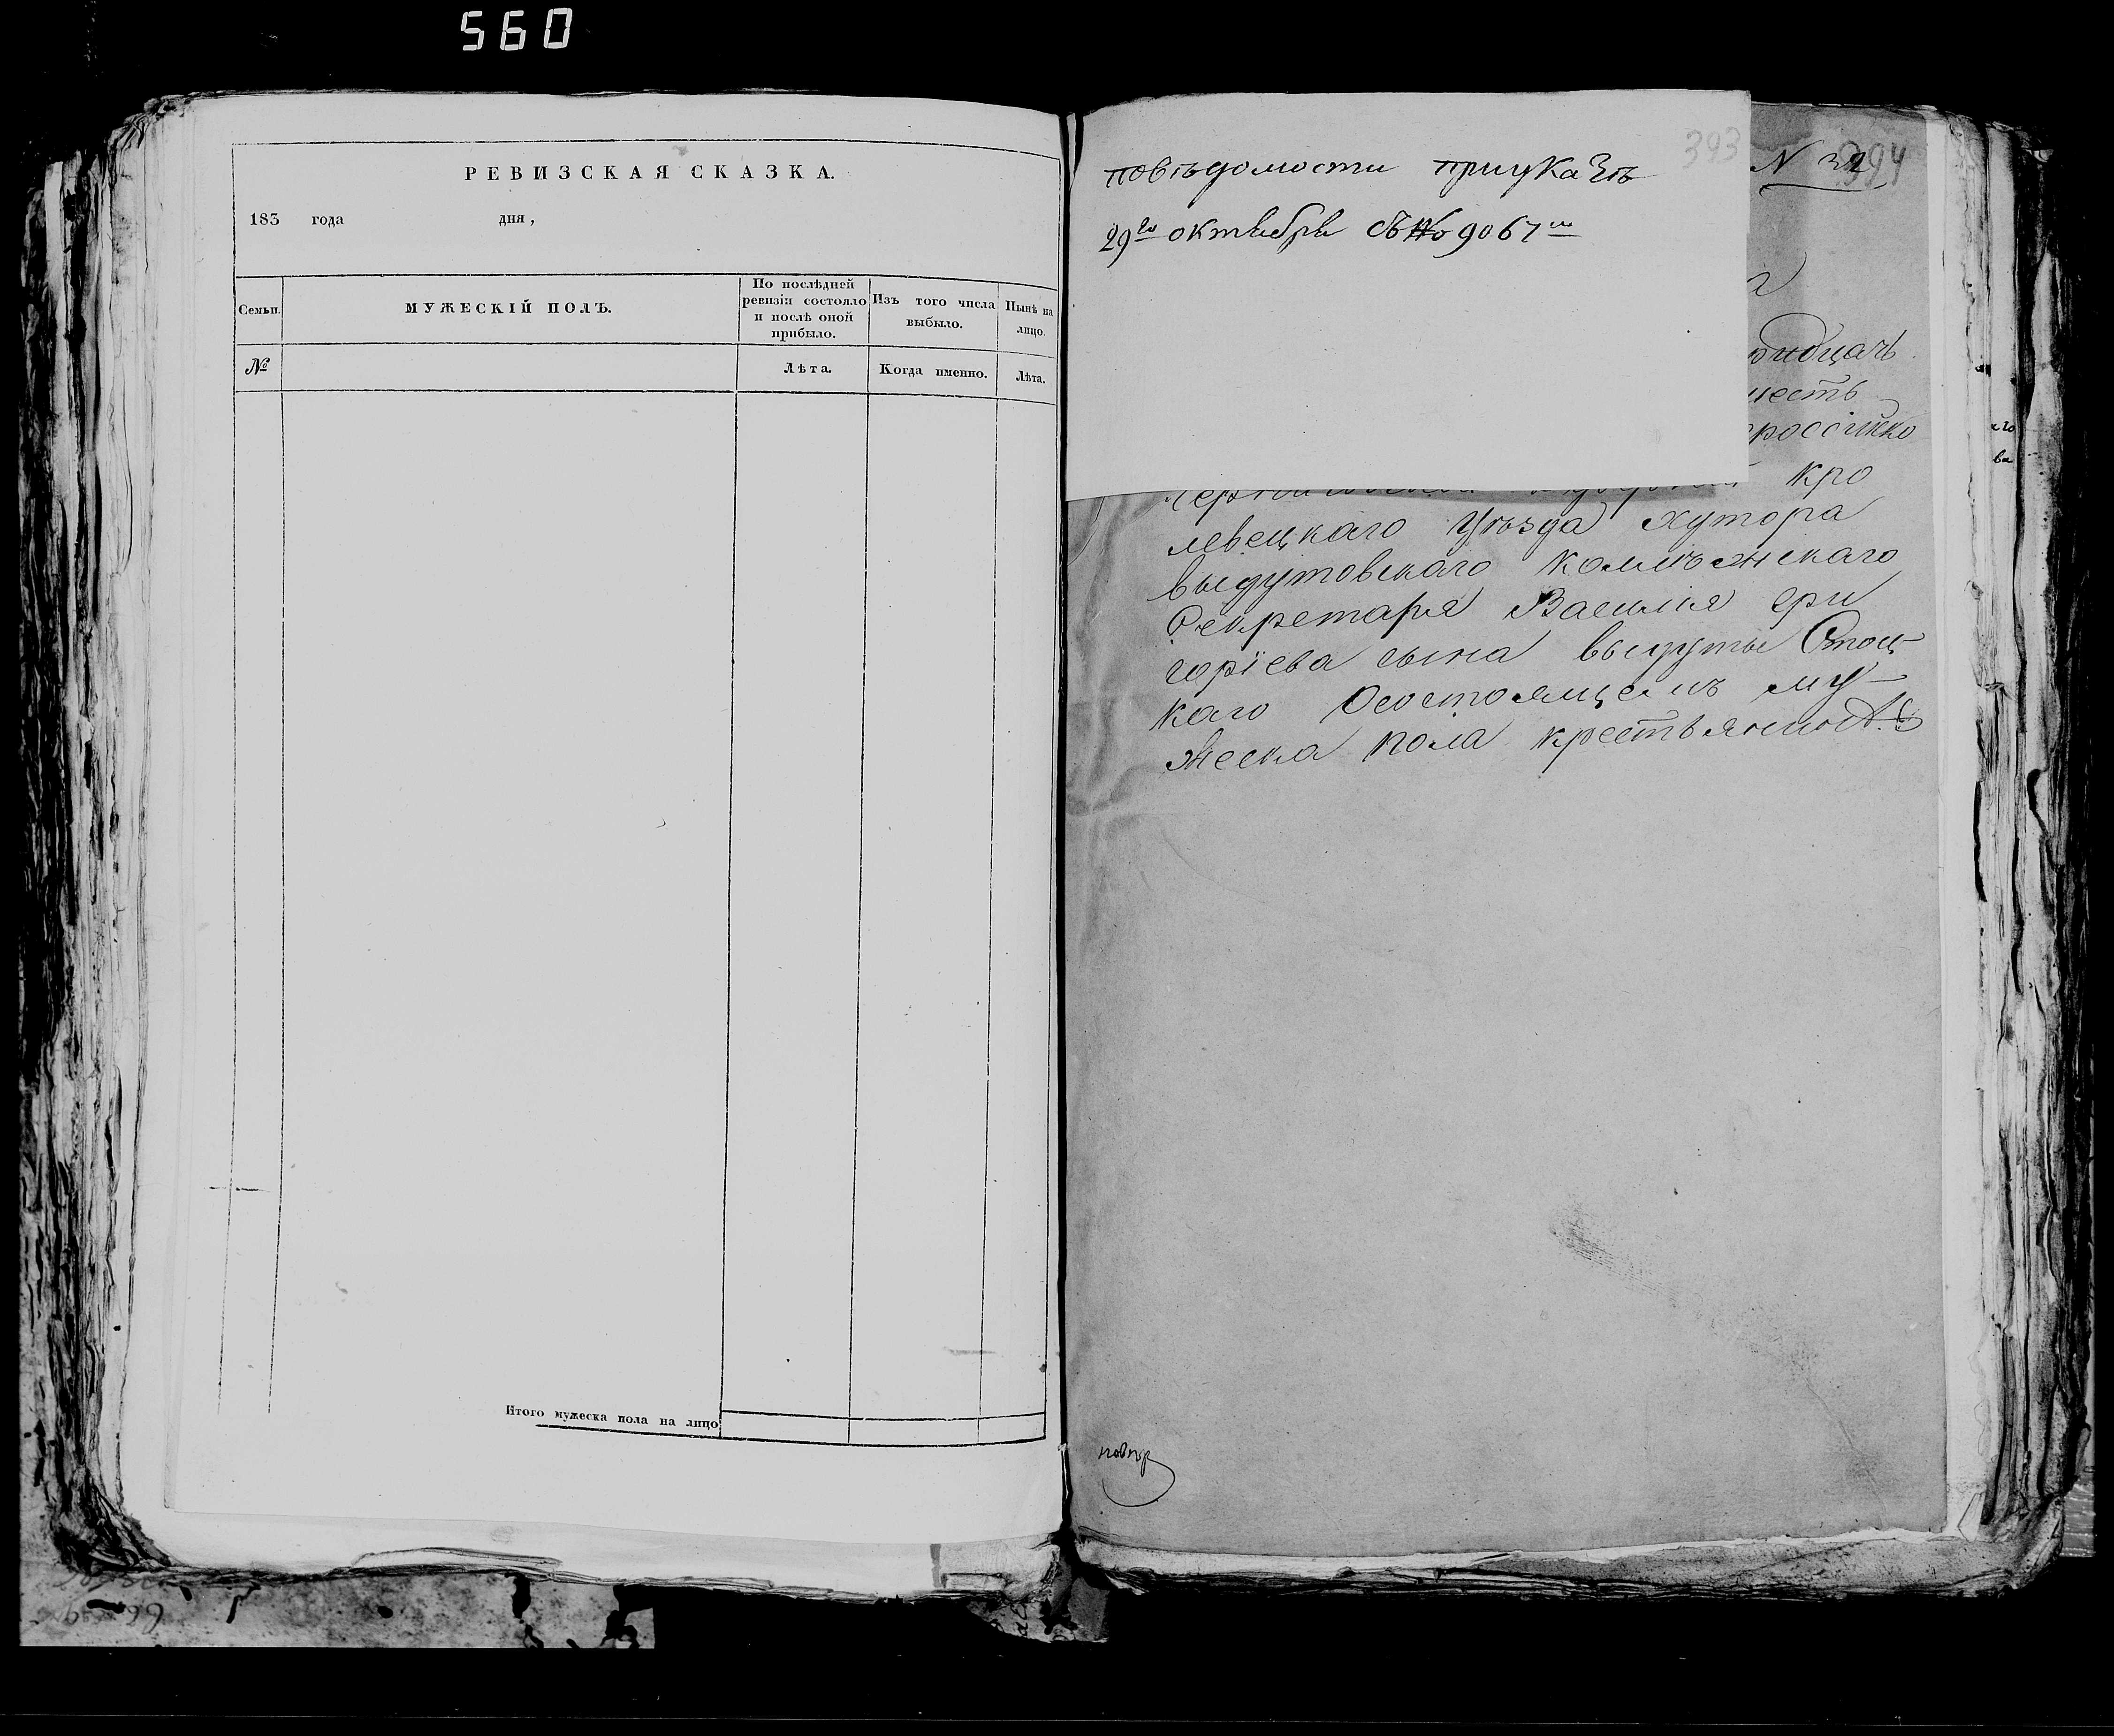 560
РЕВИЗСКАЯ СКАЗКА.
183 года дня,
Семьи.
МУЖЕСКІЙ ПОЛЪ.
По послѣдней ревизіи состояло и послѣ оной прибыло.
Изъ того числа выбыло.
Нынѣ на лицо.
№
Лѣта.
Когда именно.
Лѣта.
Итого мужеска пола на лицо
393
повѣдомости приуказѣ
29го октября съ № 9067ш
N 32
394
кро
левецкаго уѣзда хутора
выдутовскаго коллѣжскаго
Секретаря Василія гри
горіева сына выдуты Стоц
каго Осостоящемъ му
жеска пола крестьянинѣ
повѣр